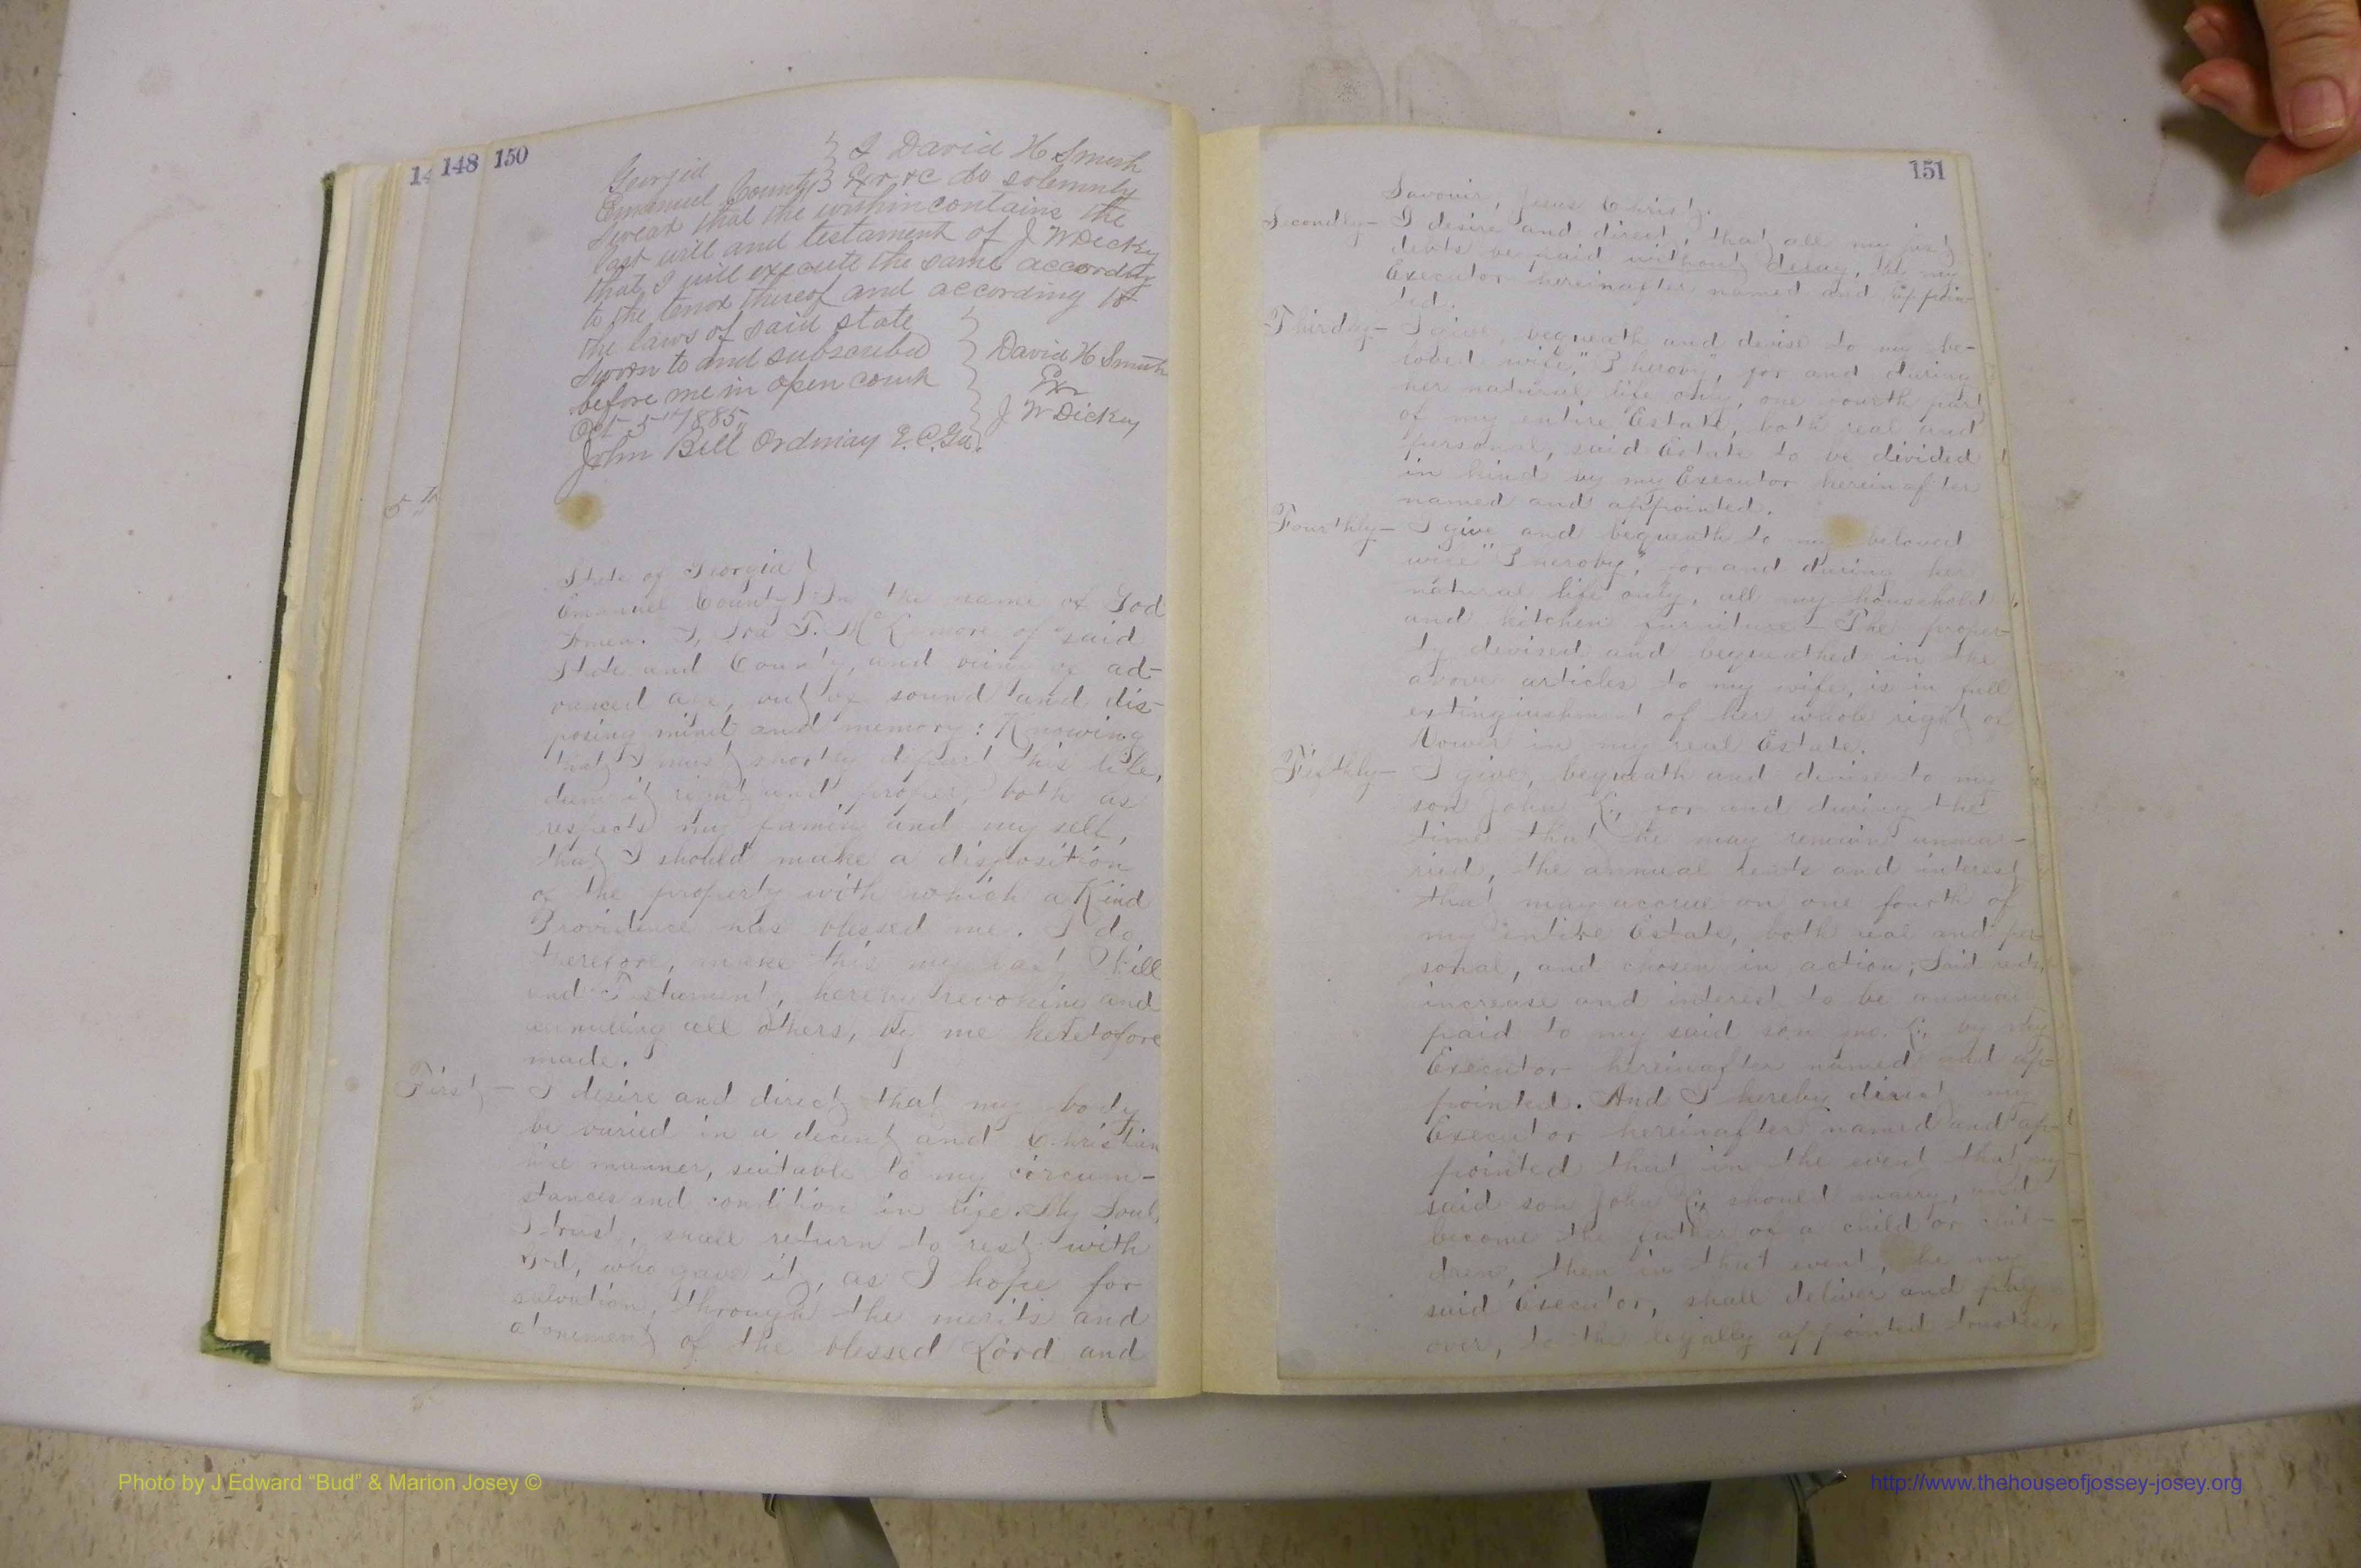 14 148 150
Georgia } I David H Smith
Emanuel County } Exr &c do solemnly
swear that the within contains the
last will and testament of J W Dickey
that I will execute the same according
to the tenor thereof and according to
the laws of said state
Sworn to and subscribed } David H Smith
before me in open court } Exr
Oct 5th 1885 } J W Dickey
John Bell Ordinay E.C. Ga.
5th
State of Georgia }
Emanuel County } In the name of God
Amen. I, Ira T. McLemore of said
State and County, and being of ad-
vanced age, but of sound and dis-
posing mind and memory: Knowing
that I must shortly depart this life,
deem it right and proper, both as
respects my family and my self,
that I should make a disposition
of the property with which a Kind
Providence has blessed me. I do
therefore, make this my last Will
and Testament, hereby revoking and
annulling all others, by me heretofore
made.
First — I desire and direct that my body
be buried in a decent and Christian
like manner, suitable to my circum-
stances and condition in life. My Soul,
I trust, shall return to rest with
God, who gave it, as I hope for
salvation, through the merits and
atonement of the blessed Lord and
151
Savouir, Jesus Christ.
Secondly — I desire and direct, that all my just
debts be paid without delay, by my
Executor hereinafter named and appoin-
ted.
Thirdly — I give, bequeath and devise to my be-
loved wife, " Pheroby", for and during
her natural life only, one fourth part
of my entire Estate, both real and
personal, said Estate to be divided
in kind by my Executor hereinafter
named and appointed.
Fourthly — I give and bequeath to my beloved
wife "Pheroby", for and during her
natural life only, all my household
and kitchen furniture — The proper-
ty devised and bequeathed in the
above articles to my wife, is in full
extinguishment of her whole right of
Dower in my real Estate.
Fifthly — I give, bequeath and devise to my
son John for and during the
time that he may remain unmar-
ried, the annual rents and interest
that may accrue on one fourth of
my entire Estate, both real and per-
sonal, and chosen in action; Said rents,
increase and interest to be annual
paid to my said son by my
Executor hereinafter named and ap-
pointed. And I hereby direct my
Executor hereinafter named and ap-
pointed that in the event that my
said son John should marry, and
become the father of a child or chil-
dren, then in that event, he my
said Executor, shall deliver and pay
over, to the legally appointed trustee,
Photo by J Edward "Bud" & Marion Josey ©
http://www.thehouseofjossey-josey.org